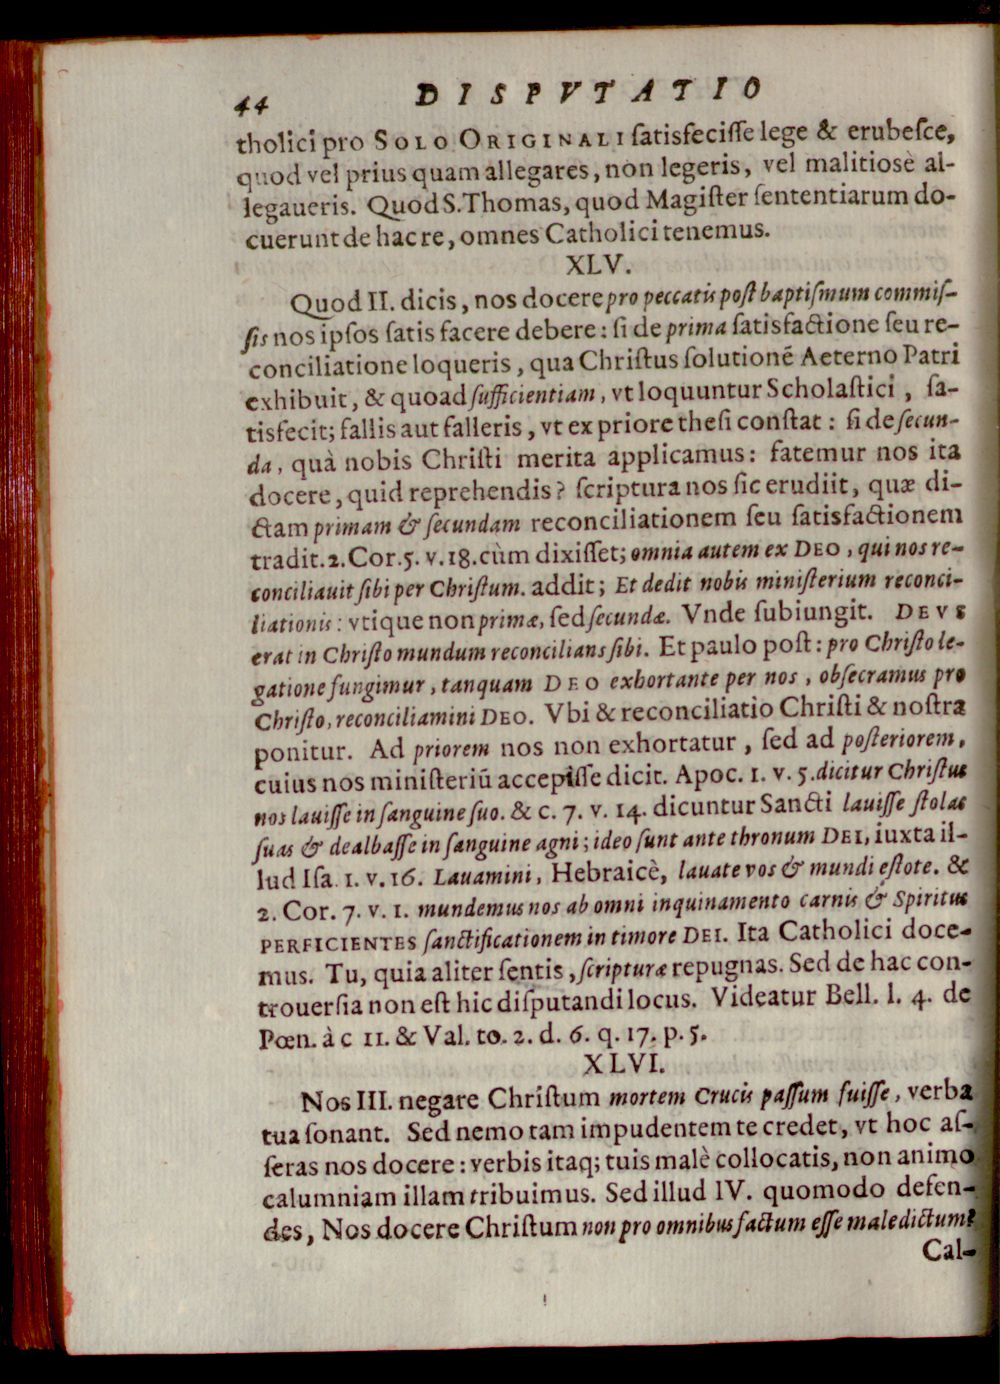 44 DISPVTATIO
tholici pro SOLO ORIGINALI ſatisfeciſſe lege & erubeſce,
quod vel prius quam allegares, non legeris, vel malitiosè al-
legaueris. Quod S. Thomas, quod Magiſter ſententiarum do-
cuerunt de hac re, omnes Catholici tenemus.
XLV.
Quod II. dicis, nos docere pro peccatis poſt baptiſmum commiſ-
ſis nos ipſos ſatis facere debere: ſi de prima ſatisfactione ſeu re-
conciliatione loqueris, qua Chriſtus ſolutionẽ Aeterno Patri
exhibuit, & quoad ſufficientiam, vt loquuntur Scholaſtici, ſa-
tisfecit; fallis aut falleris, vt ex priore theſi conſtat: ſi de ſecun-
da, quà nobis Chriſti merita applicamus: fatemur nos ita
docere, quid reprehendis? ſcriptura nos ſic erudiit, quæ di-
ctam primam & ſecundam reconciliationem ſeu ſatisfactionem
tradit. 2. Cor. 5. v. 18. cùm dixiſſet; omnia autem ex DEO, qui nos re-
conciliauit ſibi per Chriſtum. addit; Et dedit nobis miniſterium reconci-
liationis: vtique non primæ, ſed ſecundæ. Vnde ſubiungit. DEVS
erat in Chriſto mundum reconcilians ſibi. Et paulo poſt: pro Chriſto le-
gatione fungimur, tanquam DEO exhortante per nos, obſecramus pro
Chriſto, reconciliamini DEO. Vbi & reconciliatio Chriſti & noſtra
ponitur. Ad priorem nos non exhortatur, ſed ad poſteriorem,
cuius nos miniſteriũ accepiſſe dicit. Apoc. 1. v. 5. dicitur Chriſtus
nos lauiſſe in ſanguine ſuo. & c. 7. v. 14. dicuntur Sancti lauiſſe ſtolas
ſuas & dealbaſſe in ſanguine agni; ideo ſunt ante thronum DEI, iuxta il-
lud Iſa. 1. v. 16. Lauamini, Hebraicè, lauate vos & mundi eſtote. &
2. Cor. 7. v. 1. mundemus nos ab omni inquinamento carnis & Spiritus
PERFICIENTES ſanctificationem in timore DEI. Ita Catholici doce-
mus. Tu, quia aliter ſentis, ſcripturæ repugnas. Sed de hac con-
trouerſia non eſt hic diſputandi locus. Videatur Bell. l. 4. de
Pœn. à c 11. & Val. to. 2. d. 6. q. 17. p. 5.
XLVI.
Nos III. negare Chriſtum mortem Crucis paſſum fuiſſe, verba
tua ſonant. Sed nemo tam impudentem te credet, vt hoc aſ-
ſeras nos docere: verbis itaq; tuis malè collocatis, non animo
calumniam illam tribuimus. Sed illud IV. quomodo defen-
des, Nos docere Chriſtum non pro omnibus factum eſſe maledictum?
Cal-